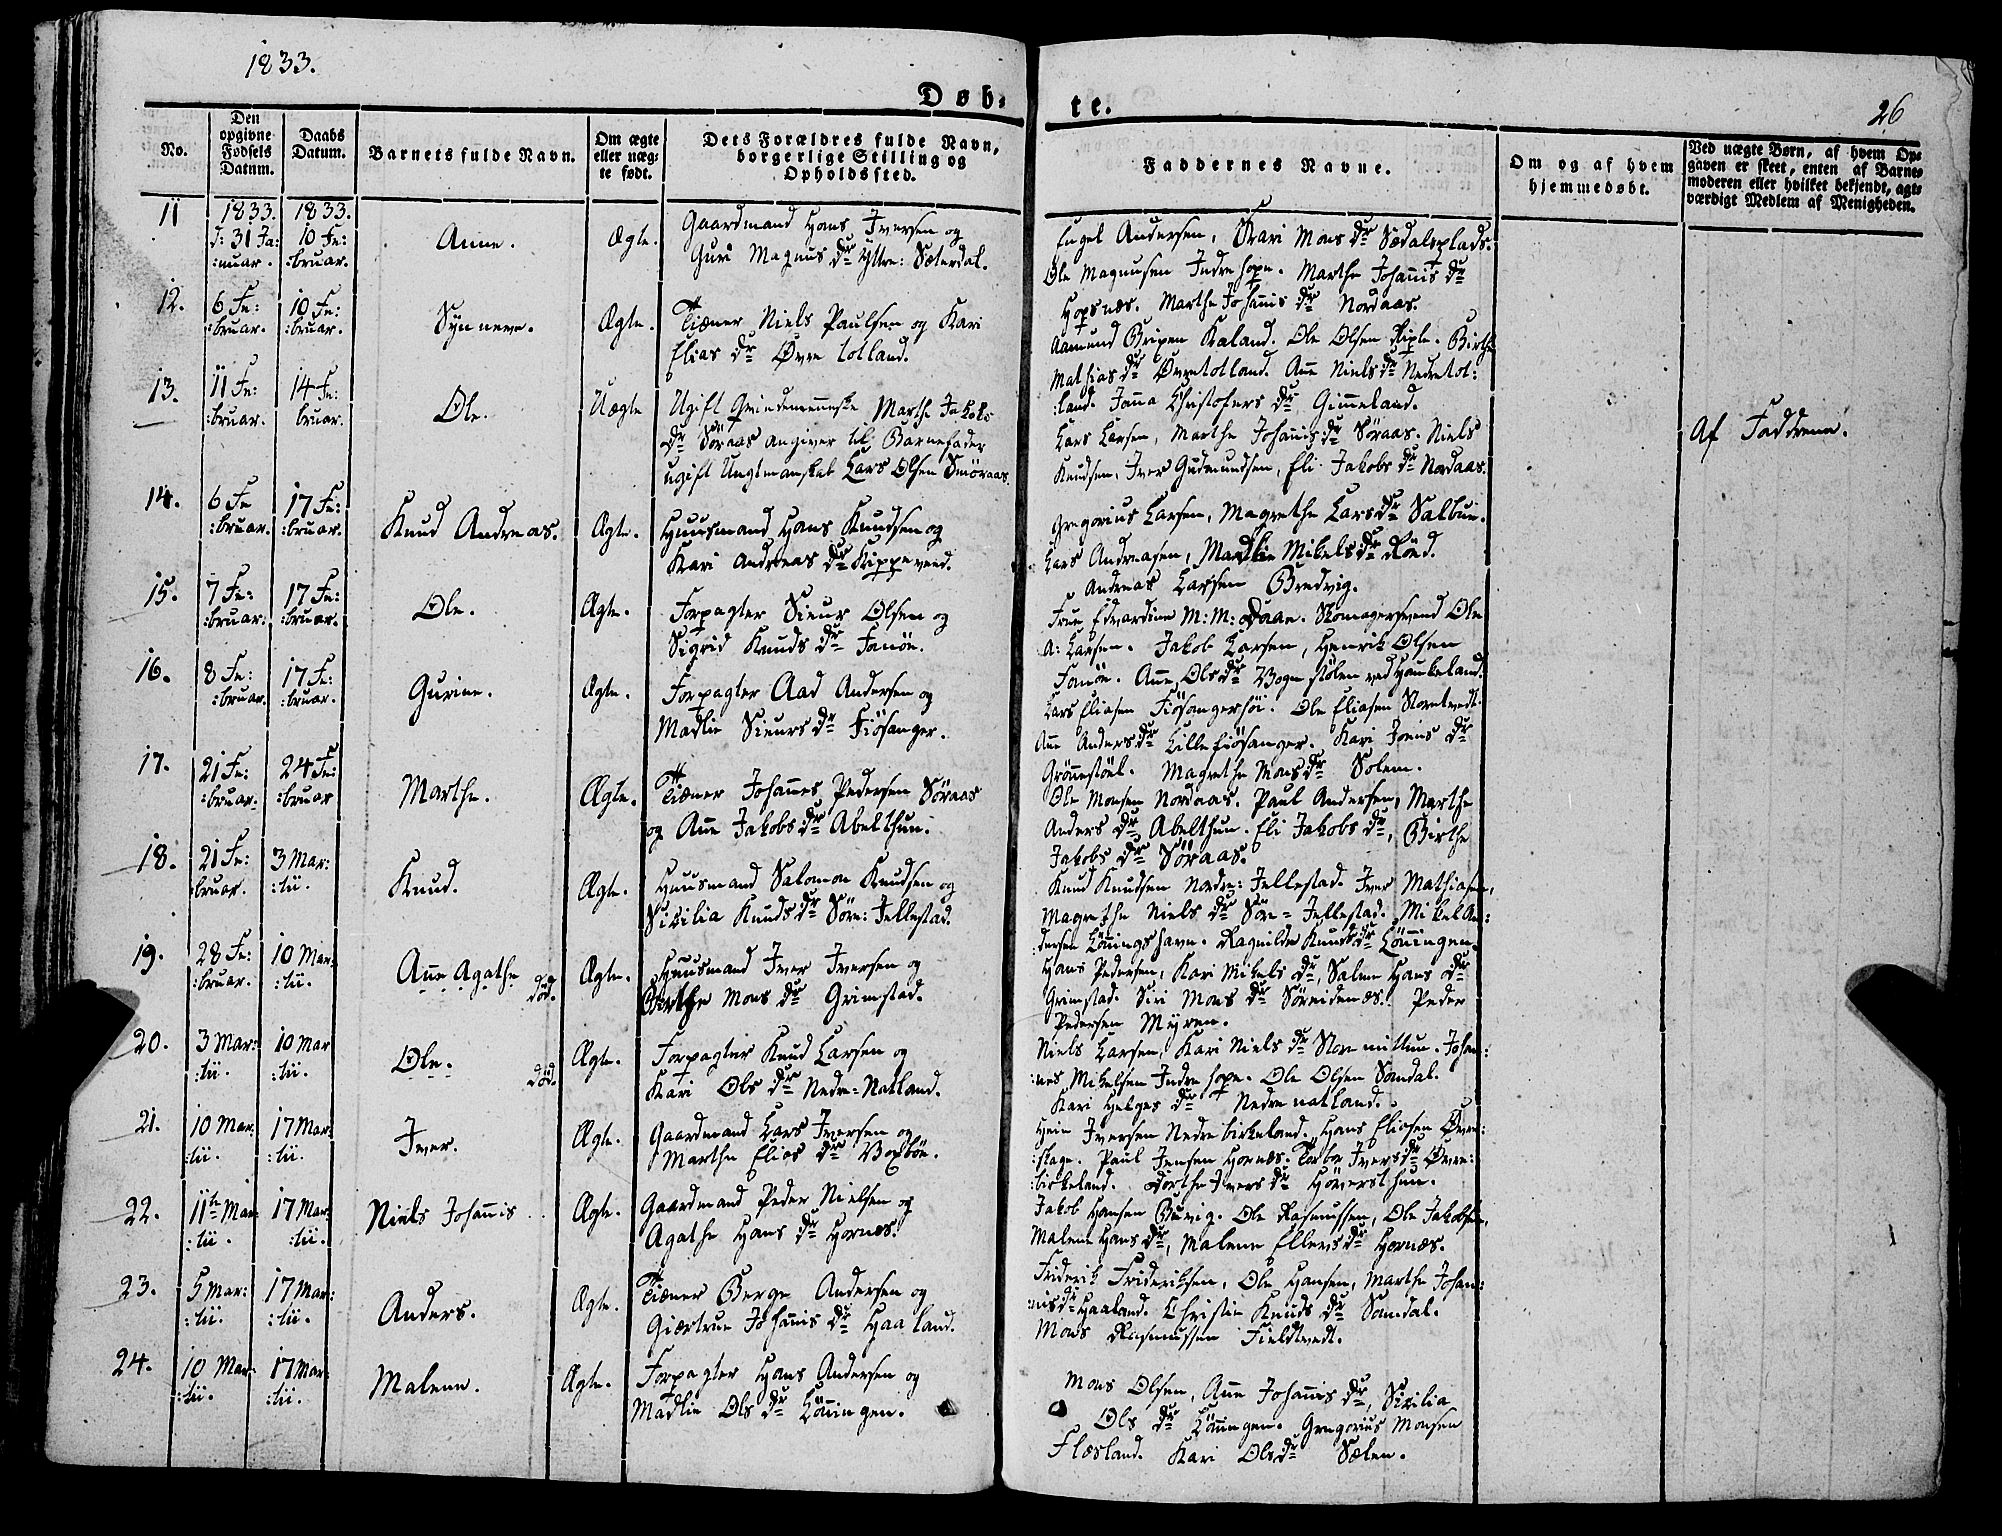 1833.
Døb-
te.
26
No.
Den
opgivne
Fødsels
Datum.
Daabs
Datum.
Barnets fulde Navn.
Om ægte
eller uæg-
te født.
Dets Forældres fulde Navn,
borgerlige Stilling og
Opholdssted.
Faddernes Navne.
Om og af hvem
hjemmedøbt.
Ved uægte Børn, af hvem Op-
gaven er skeet, enten af Barne-
moderen eller hvilket bekjendt, agt-
værdigt Medlem af Menigheden.
11
1833.
d: 31 Ja:
:nuar.
1833.
10 Fe:
:bruar.
Anne.
Ægte.
Gaardmand Hans Iversen og
Guri Magnus dr Yttre: Sæterdal.
Engel Andersen, Kari Mons dr Sædalsplads.
Ole Magnusen Indre hope. Marthe Johannis dr
Hopsnæs. Marthe Johannis dr Nordaas.
12.
6 Fe:
:bruar.
10 Fe:
:bruar.
Synneve.
Ægte.
Tiæner Niels Paulsen og Kari
Elias dr Øvre totland.
Aamund Kaland. Ole Olsen Riple. Birthe
Mathias dr Øvretotland. Anne Niels dr Nedretot:
:land. Janna Christofers dr Gimmeland.
13.
11 Fe:
:bruar.
14 Fe:
bruar.
Ole.
Uægte
Ugift Qvindemenneske Marthe Jakobs
dr Söraas angiver til Barnefader
ugift Ungtmanskab Lars Olsen Smöraas.
Lars Larsen, Marthe Johannis dr Söraas. Niels
Knudsen, Iver Gudmundsen, Eli Jakobs dr Nordaas.
Af Faddrene.
14.
6 Fe
:bruar.
17 Fe:
:bruar.
Knud Andreas.
Ægte.
Huusmand Hans Knudsen og
Kari Andreas dr Skippevend.
Gregorius Larsen, Magrethe Lars dr Salbue.
Lars Andreasen, Madlie Mikels dr Röed.
Andreas Larsen Bredvig.
15.
7 Fe:
:bruar:
17 Fe:
:bruar.
Ole.
Ægte.
Forpagter Sieur Olsen og
Sigrid Knuds dr Fanöe.
Frue Edvardine M: M: Daae. Skomagersvend Ole
A: Larsen. Jakob Larsen, Henrik Olsen
Fanöe. Anne Ols dr Vognstölen ved Haukeland.
16.
8 Fe:
:bruar.
17 Fe:
:bruar.
Gurine.
Ægte.
Forpagter Aad Andersen og
Madlie Sieurs dr Fiösanger.
Lars Eliasen Fiösangerhöi. Ole Eliasen Storetvedt.
Anne Anders dr Lillefiösanger. Kari Joens dr
Grönnestöel. Magrethe Mons dr Solem.
17.
21 Fe:
:bruar.
24 Fe:
:bruar
Marthe.
Ægte.
Tiæner Johannes Pedersen Söraas
og Anne Jakobs dr Abelthun.
Ole Monsen Nordaas. Paul Andersen, Marthe
Anders dr Abelthun. Eli Jakobs dr, Birthe
Jakobs dr Söraas.
18.
21 Fe:
:bruar.
3 Mar:
:tii.
Knud.
Ægte.
Huusmand Salomon Knudsen og
Sikilia Knuds dr Söre: Jellestad.
Knud Knudsen Nordre: Jellestad. Iver Mathiasen,
Magrethe Niels dr Söre = Jellestad. Mikel An:
:dersen Lönningshavn. Ragnilde Knuds dr Lönningen.
19.
28 Fe:
:bruar.
10 Mar:
:tii.
Anne Agathe
död.
Ægte.
Huusmand Iver Iversen og
Birthe Mons dr Grimstad.
Hans Pedersen, Kari Mikels dr, Salem Hans dr
Grimstad. Siri Mons dr Söreidenæs. Peder
Pedersen Myren.
20.
3 Mar:
:tii.
10 Mar
:tii.
Ole.
död.
Ægte.
Forpagter Knud Larsen og
Kari Ols dr Nedre-Natland.
Niels Larsen, Kari Niels dr Store mittun. Johan:
:nes Mikelsen Indre hope. Ole Olsen Sandal.
Kari Helges dr Nedre natland.
21.
10 Mar:
:tii.
17 Mar:
:tii.
Iver.
Ægte.
Gaardmand Lars Iversen og
Marthe Elias dr Vaxböe.
Hein Iversen Nedre birkeland. Hans Eliasen Øvre:
:stage. Paul Jensen Hornæs. Torbor Ivers dr Øvre:
:birkeland. Dorthe Ivers dr Höversthun.
22.
11te Mar:
:tii.
17 Mar:
:tii.
Niels Johannis
Ægte.
Gaardmand Peder Nielsen og
Agathe Hans dr Hornæs.
Jakob Hansen Buevig. Ole Rasmussen, Ole Jakobsen,
Malene Hans dr, Malene Ellers dr Hornæs.
23.
5 Mar:
:tii.
17 Mar:
:tii.
Anders.
Ægte.
Tiæner Berge Andersen og
Giertrue Johannis dr Haaland.
Friderik Frideriksen, Ole Hansen, Marthe Johan:
:nis dr Haaland. Christie Knuds dr Sandal.
Mons Rasmussen Fieldtvedt.
24.
10 Mar:
:tii.
17 Mar:
:tii.
Malene.
Ægte.
Forpagter Hans Andersen og
Madlie Ols dr Lönningen.
Mons Olsen, Anne Johannis dr, Sicilia
Ols dr Lönningen. Gregorius Monsen
Flæsland. Kari Ols dr Sælen.